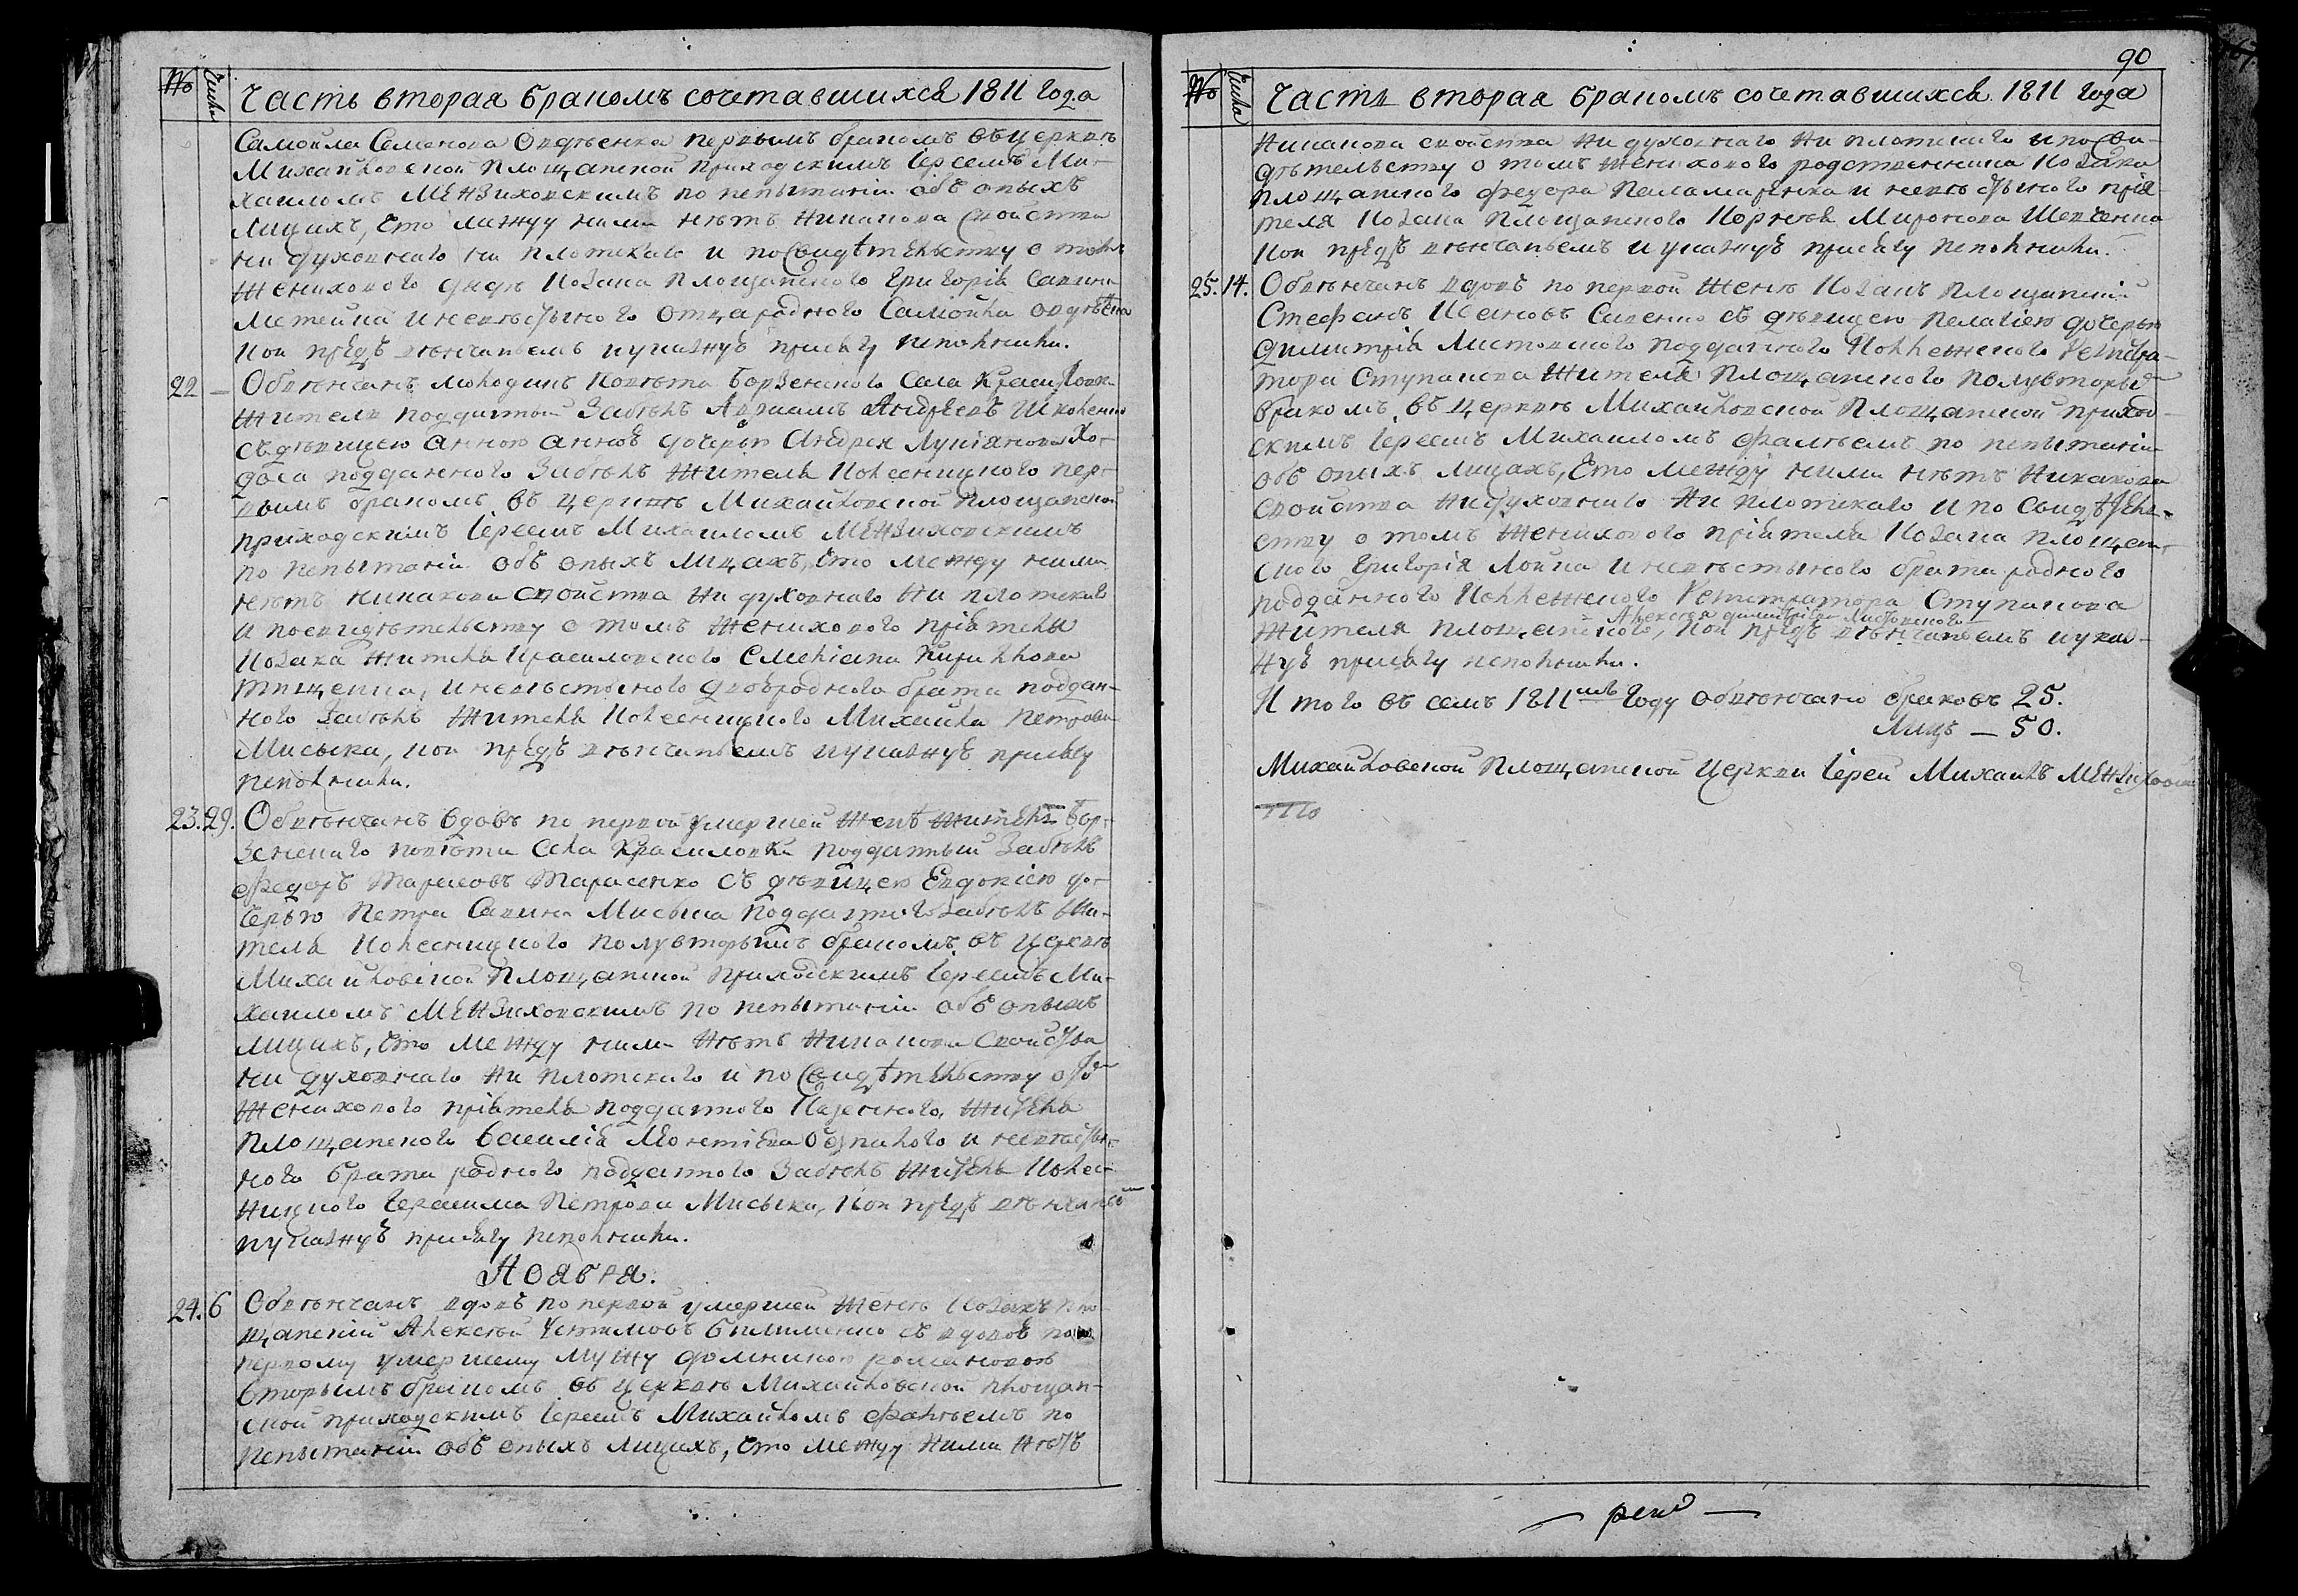 № Числа Часть вторая бракомъ сочетавшихся 1811 года
Самойла Семенова первымъ бракомъ въ церквѣ
Михайловской Площанской приходскимъ Іереемъ Ми-
хаиломъ Мензиховскимъ по испытаніи объ оныхъ
лицахъ, что между ними нѣтъ никакова свойства
ни духовнаго ни плотскаго и по свидѣтельству о томъ
женихового дяди козака площанского Григорія Савина
и невѣстыного отца родного Самойла
кои предъ вѣнчаньемъ и указнуѣ присягу исполнили.
22 — Обвѣнчанъ молодикъ повѣта Борзенского села Красиловки
житель подданный Забѣлъ Авраамъ Андреевъ
съ дѣвицею Анною дочерью Андрея Лукіянова Хо-
доса подданного Забѣлъ жителя колесницкого пер-
вымъ бракомъ въ церквѣ Михайловской Площанской
приходскимъ Іереемъ Михаиломъ Мензиховскимъ
по испытаніи объ оныхъ лицахъ, что между ними
нѣтъ никакова свойства ни духовнаго ни плотскаго
и по свидѣтельству о томъ женихового пріятеля
козака жителя красиловского Емеліана Кирилова
и невѣстыного двоюродного брата поддан-
ного Забѣлъ жителя колесницкого Михайла Петрова
Мисыка, кои предъ вѣнчаньемъ и указнуѣ присягу
исполнили.
23. 29. Обвѣнчанъ вдовъ по первой умершей женѣ житель Бор-
зенского повѣта села Красиловки подданный Забѣлъ
Федоръ Тарасовъ Тарасенко съ дѣвицею Евдокіею до-
черью Петра Савина Мисыка подданного Забѣлъ жи-
теля колесницкого полувторымъ бракомъ въ церквѣ
Михайловской Площанской приходскимъ Іереемъ Ми-
хаиломъ Мензиховскимъ по испытаніи объ оныхъ
лицахъ, что между ними нѣтъ никакова свойства
ни духовнаго ни плотскаго и по свидѣтельству о то
женихового пріятеля подданного Казенного, жителя
площанского Василія и невѣсты-
ного брата родного подданного Забѣлъ жителя колес-
ницкого Герасима Петрова Мисыка, кои предъ вѣнчаньем
и указнуѣ присягу исполнили.
Ноября.
24. 6 Обвѣнчанъ вдовъ по первой умершей женѣ козакъ пло-
щанскій Алексѣй Устимовъ съ вдовоѣ по
первому умершему мужу романовоѣ
вторымъ бракомъ въ церквѣ Михайловской площан-
ской приходскимъ Іереемъ Михаиломъ Фалѣемъ по
испытаніи объ оныхъ лицахъ, что между ними нѣтъ
90
№ Числа Часть вторая бракомъ сочетавшихся 1811 года
никакова свойства ни духовнаго ни плотскаго и по сви-
дѣтельству о томъ женихового родственника козака
площанского Федора Паламаренка и невѣстыного прія-
теля козака площанского Корнѣя Миронова Шевченка
кои предъ вѣнчаньемъ и указнуѣ присягу исполнили.
25. 14. Обвѣнчанъ вдовъ по первой женѣ козакъ площанскій
Стефанъ Исаковъ Савенко съ дѣвицею Пелагіею дочерью
Димитрія Листовского подданного коллежского регистра-
тора Ступакова жителя площанского полувторымъ
бракомъ въ церквѣ Михайловской Площанской приход-
скимъ Іереемъ Михаиломъ Фалѣемъ по испытаніи
объ оныхъ лицахъ, что между ними нѣтъ никакова
свойства ни духовнаго ни плотскаго и по свидѣтель-
ству о томъ женихового пріятеля козака площан-
ского Григорія и невѣстыного брата родного
подданного коллежского регистратора Ступакова
Алексѣя Димитріева Листовского
жителя площанского, кои предъ вѣнчаньемъ и указ-
нуѣ присягу исполнили.
И того въ семъ 1811мъ году обвѣнчано браковъ 25.
лицъ — 50.
Михайловской Площанской церкви Іерей Михаилъ